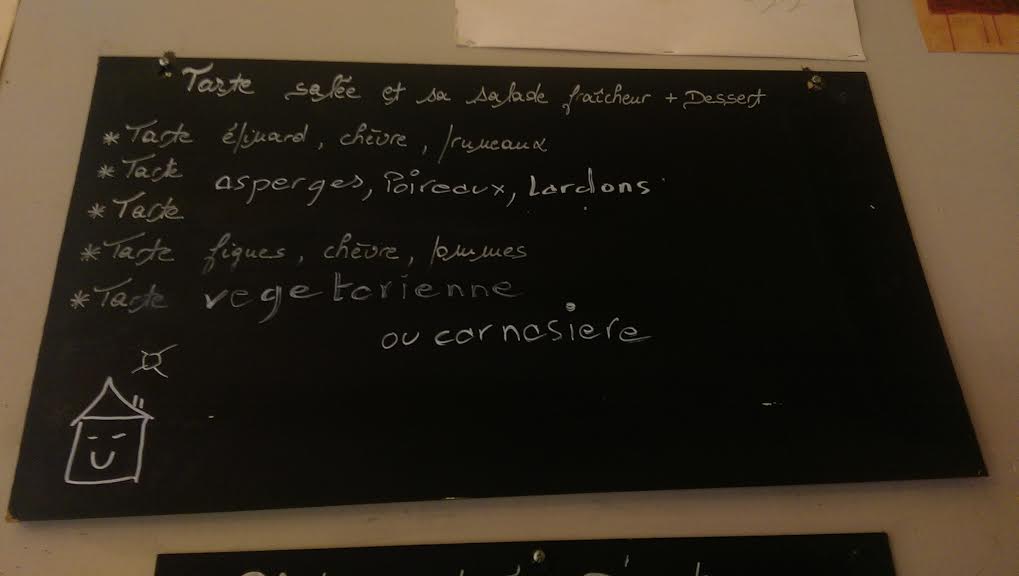 Tarte salée et sa salade fraîcheur + Dessert
* Tarte épinard, chèvre, pruneaux
* Tarte asperges, Poireaux, Lardons
* Tarte
* Tarte figues, chèvre, pommes
* Tarte vegetarienne
ou carnasiere